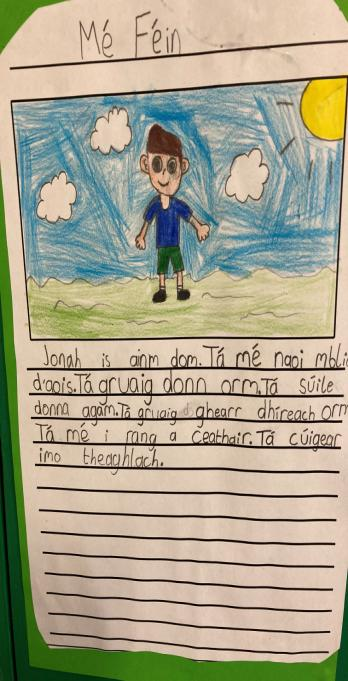 Mé Féin
Jonah is ainm dom. Tá mé naoi mbli
d'aois. Tá gruaig donn orm. Tá súile
donna agam. Tá gruaig ghearr dhíreach orm
Tá mé i rang a ceathair. Tá cúigear
imo theaghlach.